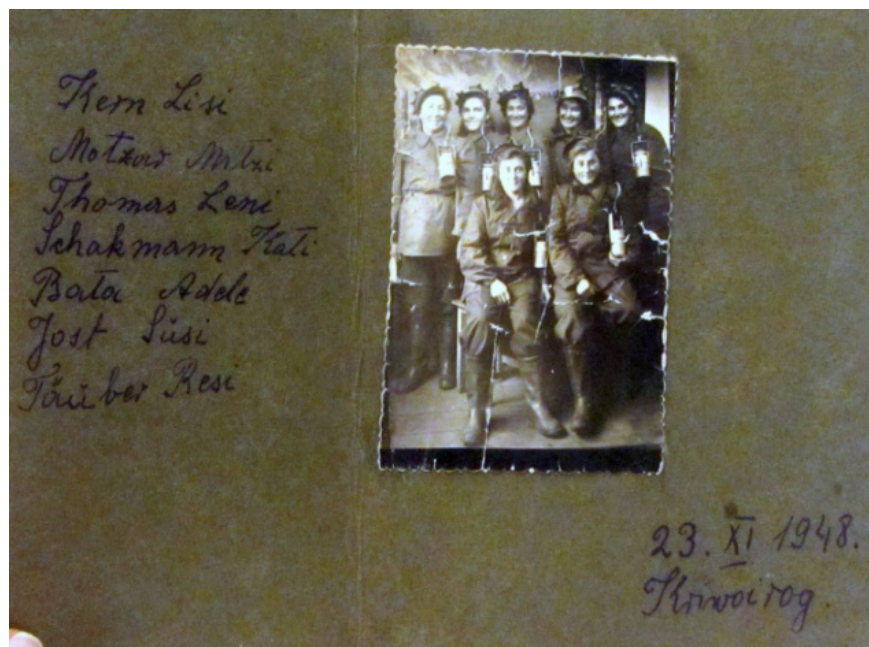 Kern Lisi
Motzar Mitzi
Thomas Leni
Schakmann Kati
Bata Adele
Jost Susi
Täuber Resi
23. XI 1948.
Kriwoirog.